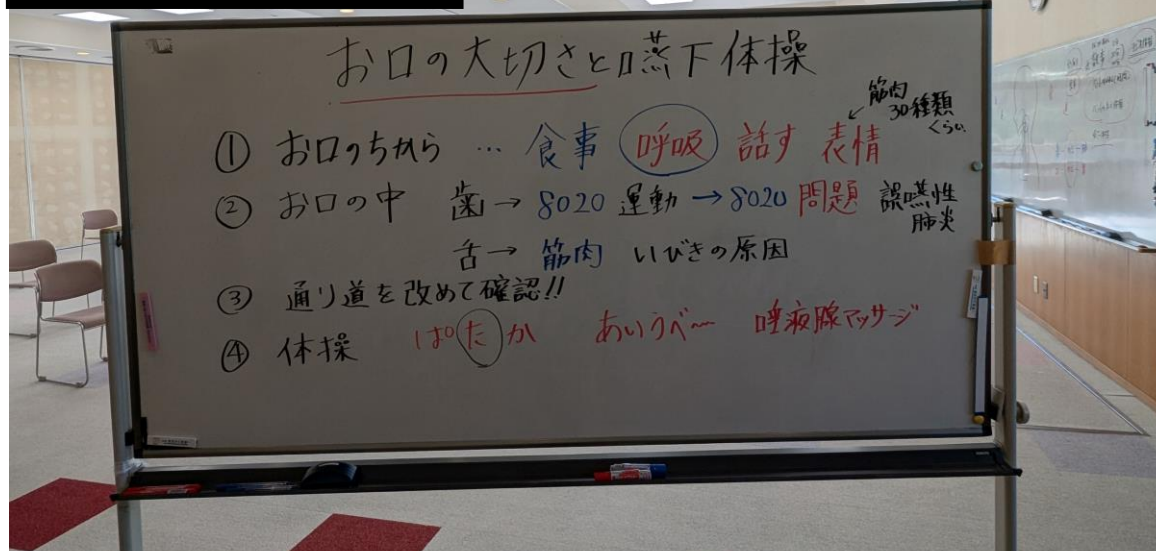 お口の大切さと嚥下体操
筋肉
30種類
くらい
① お口のちから … 食事 呼吸 話す 表情
② お口の中 歯→8020運動→8020問題 誤嚥性
肺炎
舌→筋肉 いびきの原因
③ 通り道を改めて確認!!
④ 体操 ぱたか あいうべ〜 唾液腺マッサージ